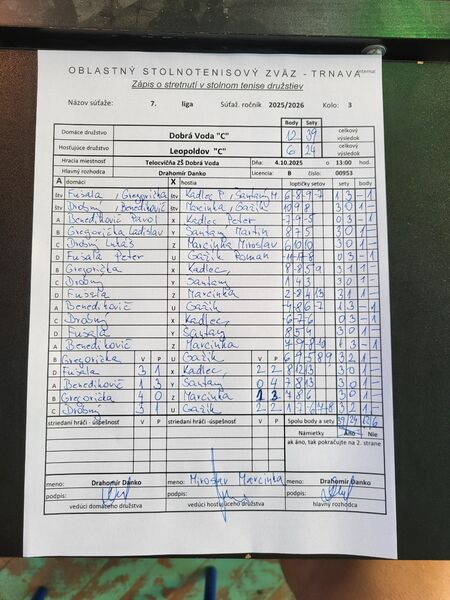 OBLASTNÝ STOLNOTENISOVÝ ZVÄZ - TRNAVA
Internal
Zápis o stretnutí v stolnom tenise družstiev
Názov súťaže: 7. liga Súťaž. ročník 2025/2026 Kolo: 3
Body Sety
Domáce družstvo Dobrá Voda "C" 12 39 celkový výsledok
Hosťujúce družstvo Leopoldov "C" 6 24 celkový výsledok
Hracia miestnosť Telocvičňa ZŠ Dobrá Voda Dňa: 4.10.2025 o 13:00 hod.
Hlavný rozhodca Drahomír Danko Licencia: B číslo: 00953
A domáci X hostia loptičky setov sety body
štv Fusala, Gregorička štv Kadlec P, Santany M. 1 3 - 1
štv Drobný, Benedikovič štv Marcinka, Gažík 10 9 8 3 0 1 -
A Benedikovič Pavol X Kadlec Peter -7 -9 -5 0 3 - 1
B Gregorička Ladislav Y Santany Martin 8 7 5 3 0 1 -
C Drobný Lukáš Z Marcinka Miroslav 6 10 10 3 0 1 -
D Fusala Peter U Gažík Roman 0 3 - 1
B Gregorička X Kadlec 3 1 1 -
C Drobný Y Santany 1 4 5 3 0 1 -
D Fusala Z Marcinka 3 1 1 -
A Benedikovič U Gažík 1 3 - 1
C Drobný X Kadlec -6 -7 -6 0 3 - 1
D Fusala Y Santany 8 5 4 3 0 1 -
A Benedikovič Z Marcinka 1 3 - 1
B Gregorička V P U Gažík V P 3 2 1 -
D Fusala 3 1 X Kadlec 2 2 8 12 13 3 0 1 -
A Benedikovič 1 3 Y Santany 0 4 7 8 13 3 0 1 -
B Gregorička 4 0 Z Marcinka 1 3 7 8 6 3 0 1 -
C Drobný 3 1 U Gažík 2 2 3 2 1 -
striedaní hráči - úspešnosť V P striedaní hráči -úspešnosť V P Spolu body a sety 39/24 12/6
Námietky Áno Nie
ak áno, tak pokračujte na 2. strane
meno: Drahomír Danko meno: Miroslav Marcinka meno: Drahomír Danko
podpis: podpis: podpis:
vedúci domáceho družstva vedúci hosťujúceho družstva hlavný rozhodca